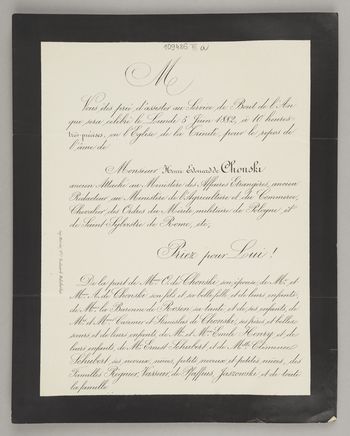 109486 III a
M
Vous êtes prié d'assister au Service de Bout de l'An
qui sera célébré le Lundi 5 Juin 1882, à 10 heures
très-précises, en l'Eglise de la Trinité, pour le repos de
l'âme de
Monsieur Henri Edouard de Chonski
ancien Attaché au Ministère des Affaires Etrangères, ancien
Rédacteur au Ministère de l'Agriculture et du Commerce,
Chevalier des Ordres du Mérite militaire de Pologne et
de Saint Sylvestre de Rome, etc,
Priez pour Lui!
De la part de Mme O. de Chonska, son épouse, de Mr et
Mme A. de Chonski son fils et sa belle fille et de leurs enfants,
de Mme la Baronne de Rosen sa tante et de ses enfants, de
Mr et Mme Casimir et Stanislas de Chonski, ses frères et belles
sœurs et de leurs enfants, de Mr et Mme Emile Henry et de
leurs enfants, de Mr Ernest Schubert, et de Melle Clémence
Schubert ses neveux, nièces, petits neveux et petites nièces, des
Familles Régnier, Vasseur, de Pfaffius, Jaszowski et de toute
la famille.